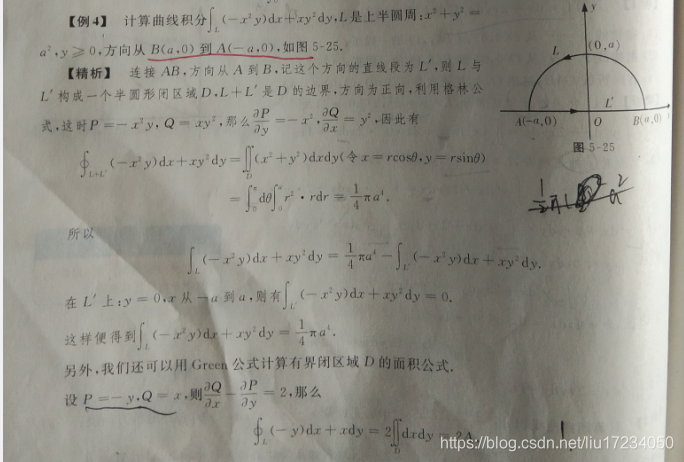 【例4】 计算曲线积分∫_L(-x²y)dx+xy²dy,L是上半圆周:x²+y²=
a²,y≥0,方向从B(a,0)到A(-a,0),如图5-25.
【精析】 连接AB,方向从A到B,记这个方向的直线段为L′,则L与
L′构成一个半圆形闭区域D,L+L′是D的边界,方向为正向,利用格林公
式,这时P=-x²y,Q=xy²,那么∂P/∂y=-x²,∂Q/∂x=y²,因此有
∮_{L+L′}(-x²y)dx+xy²dy=∬_D(x²+y²)dxdy(令x=rcosθ,y=rsinθ)
=∫₀^π dθ∫₀^a r²·rdr=1/4 πa⁴.
所以
∫_L(-x²y)dx+xy²dy=1/4 πa⁴-∫_{L′}(-x²y)dx+xy²dy.
在L′上:y=0,x从-a到a,则有∫_{L′}(-x²y)dx+xy²dy=0.
这样便得到∫_L(-x²y)dx+xy²dy=1/4 πa⁴.
另外,我们还可以用Green公式计算有界闭区域D的面积公式.
设P=-y,Q=x,则∂Q/∂x-∂P/∂y=2,那么
∮_L(-y)dx+xdy=2∬_D dxdy=2A
y
L
(0,a)
L′
A(-a,0)
O
B(a,0)
x
图5-25
https://blog.csdn.net/liu17234050